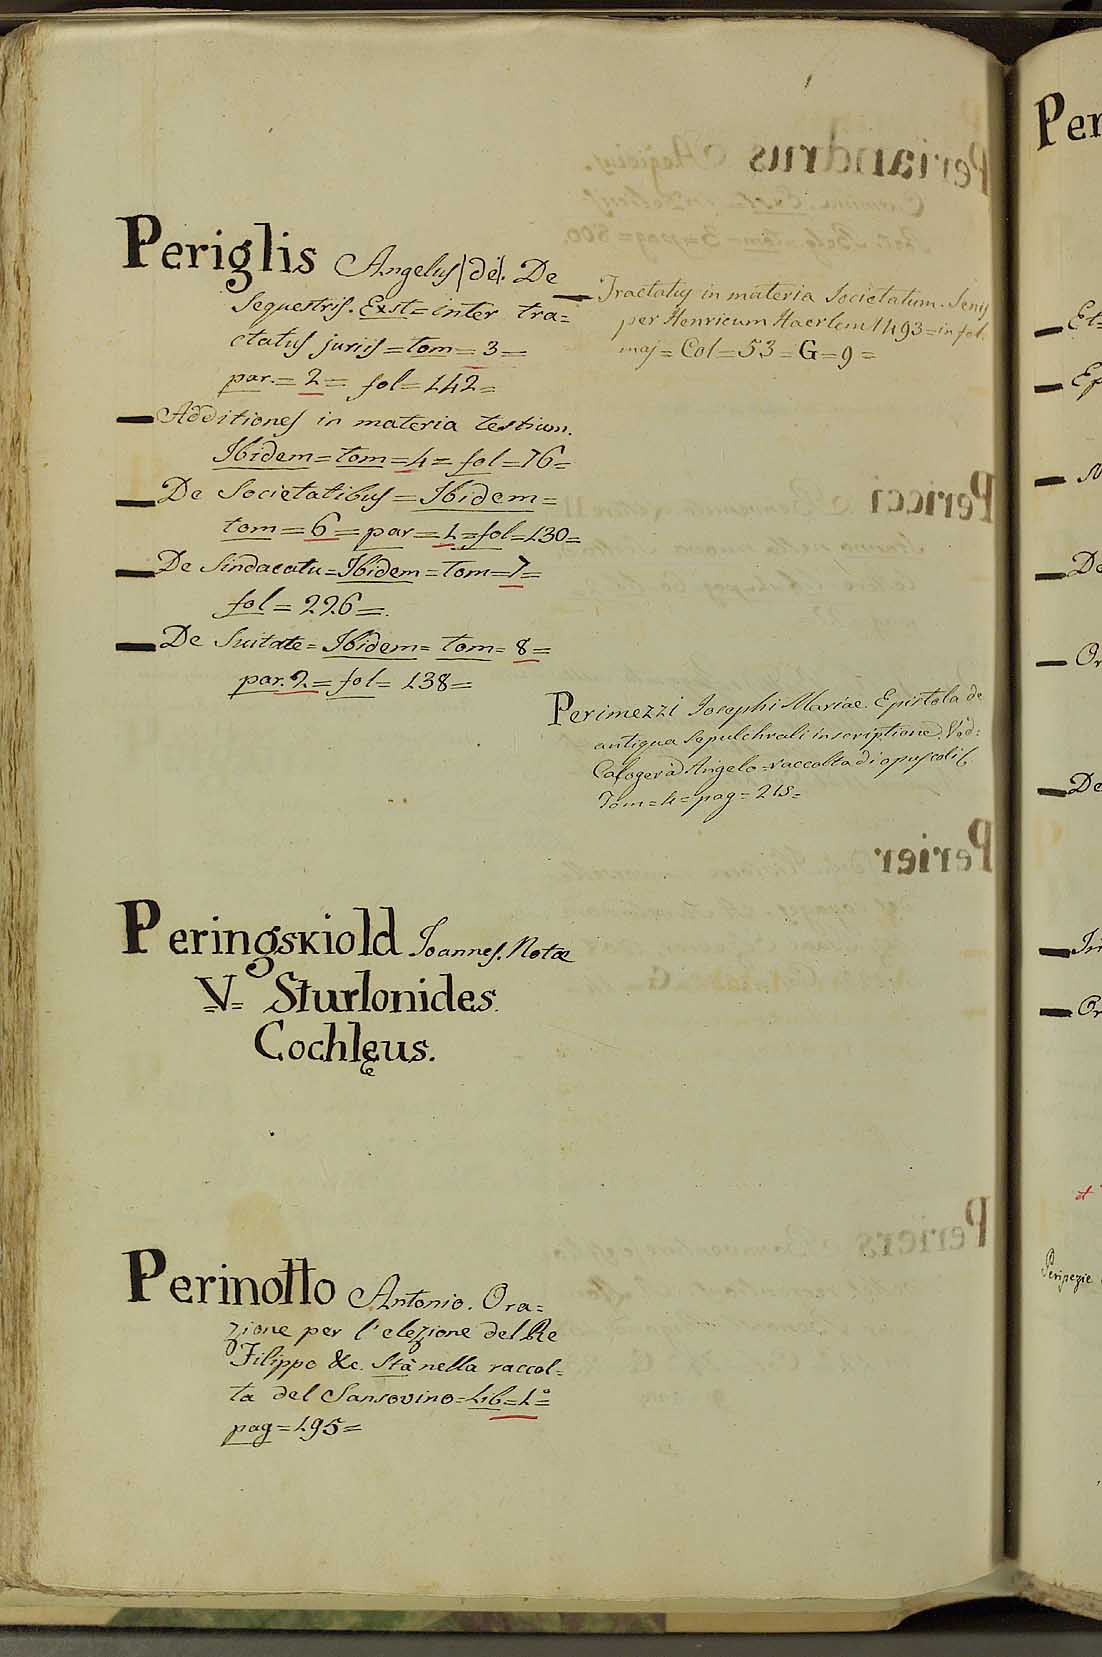 Periglis Angelus (de). De
sequestris. Exst= inter tra=
ctatus juris = tom = 3 =
par. = 2 = fol = 142 =
— Additiones in materia testium.
Ibidem = tom = 4 = fol = 76 =
— De Societatibus = Ibidem =
tom = 6 = par = 1 = fol = 130 =
— De Sindacatu = Ibidem = tom = 7 =
fol = 226 =.
— De Suitate = Ibidem = tom = 8 =
par. 2 = fol = 138 =
— Tractatus in materia Societatum. Senis
per Henricum Haerlem 1493 = in fol.
maj = Col = 53 = G = 9 =
Perimezzi Josephi Mariae. Epistola de
antiqua sepulchrali inscriptione. Ved:
Calogerà Angelo = raccolta di opuscoli
Tom = 4 = pag = 215 =
Peringskiold Joannes. Notæ
V= Sturlonides.
Cochlęus.
Perinotto Antonio. Ora=
zione per l'elezione del Re
Filippo &c. Stà nella raccol=
ta del Sansovino = Lib = 1.° =
pag = 195 =
Per
— Et
— De
— Or
— De
— Or
Peripezie